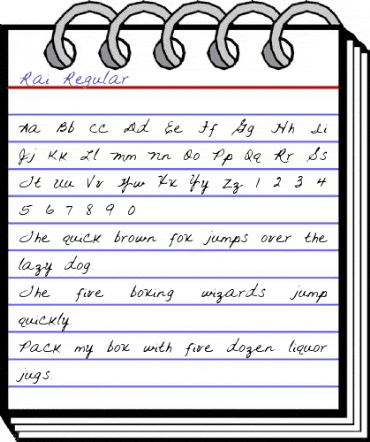 Rai Regular
Aa Bb Cc Dd Ee Ff Gg Hh Ii
Jj Kk Ll Mm Nn Oo Pp Qq Rr Ss
Tt Uu Vv Ww Xx Yy Zz 1 2 3 4
5 6 7 8 9 0
The quick brown fox jumps over the
lazy dog
The five boxing wizards jump
quickly.
Pack my box with five dozen liquor
jugs.